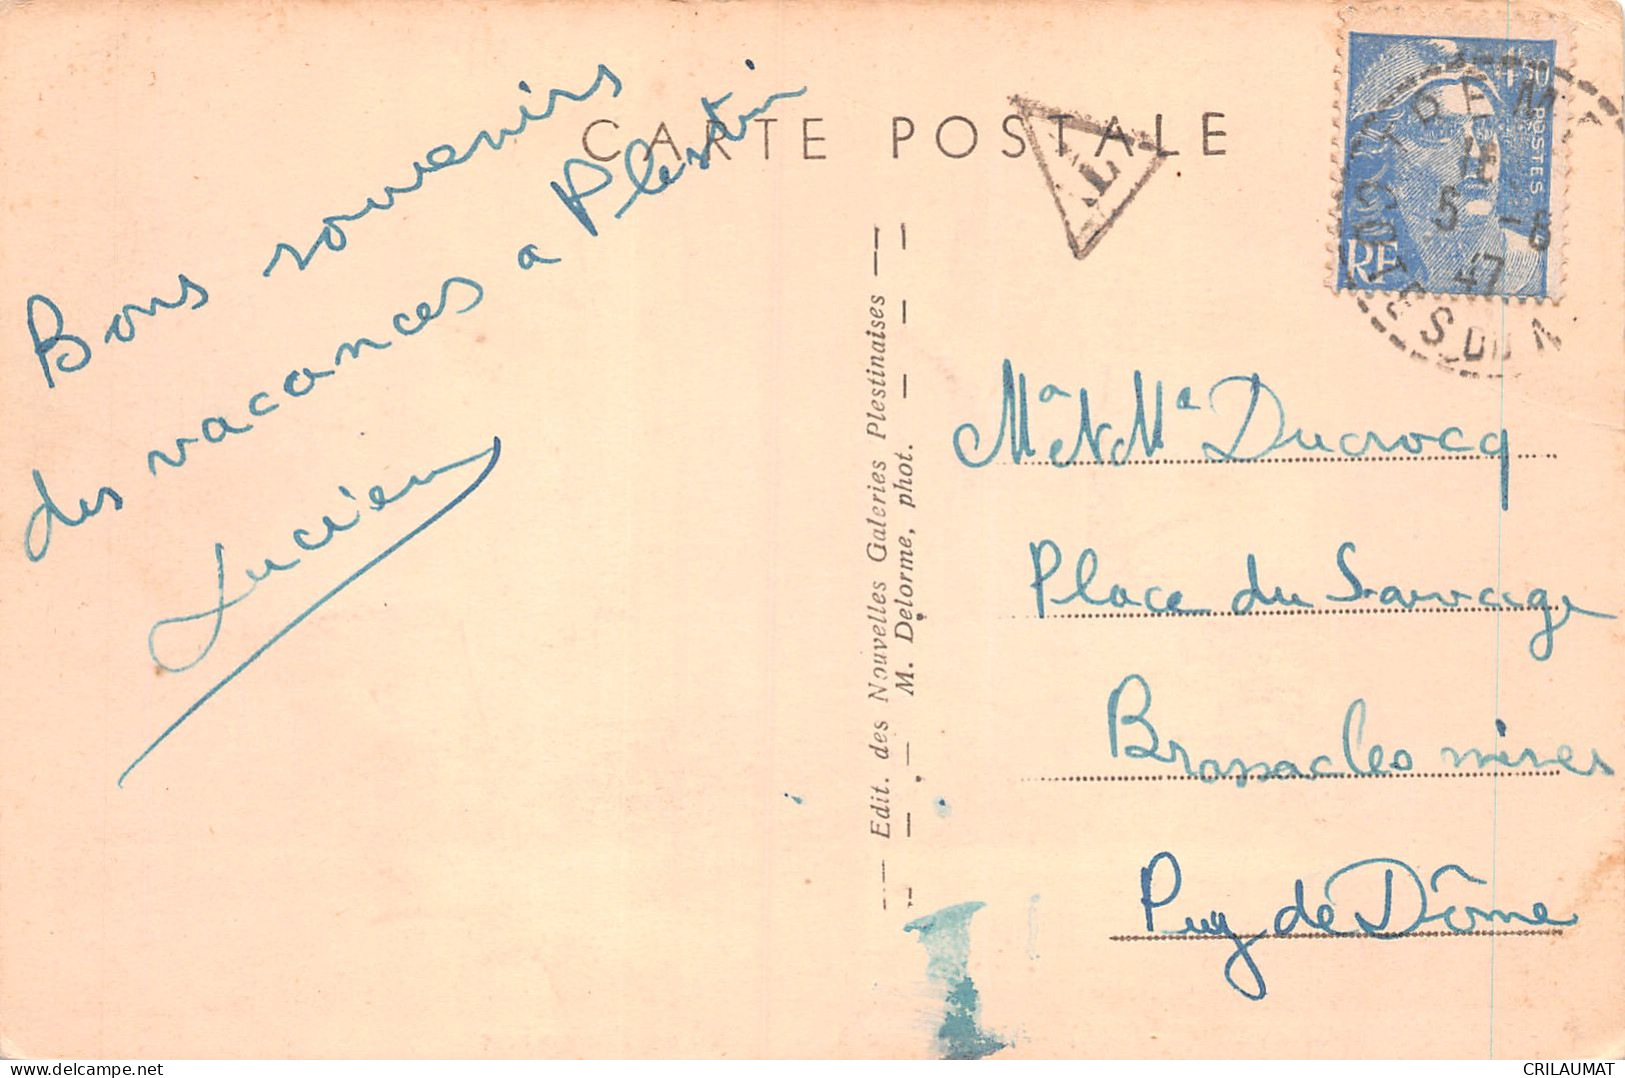 CARTE POSTALE
Bons souvenirs
des vacances a Plestin
Lucien
Edit. des Nouvelles Galeries Plestinaises
M. Delorme, phot.
T
4F50
POSTES
RF
5 -6
47
CÔTES DU N
Mr et Me Ducrocq
Place du Sauvage
Brassac les mines
Puy de Dôme
delcampe.net
CRILAUMAT